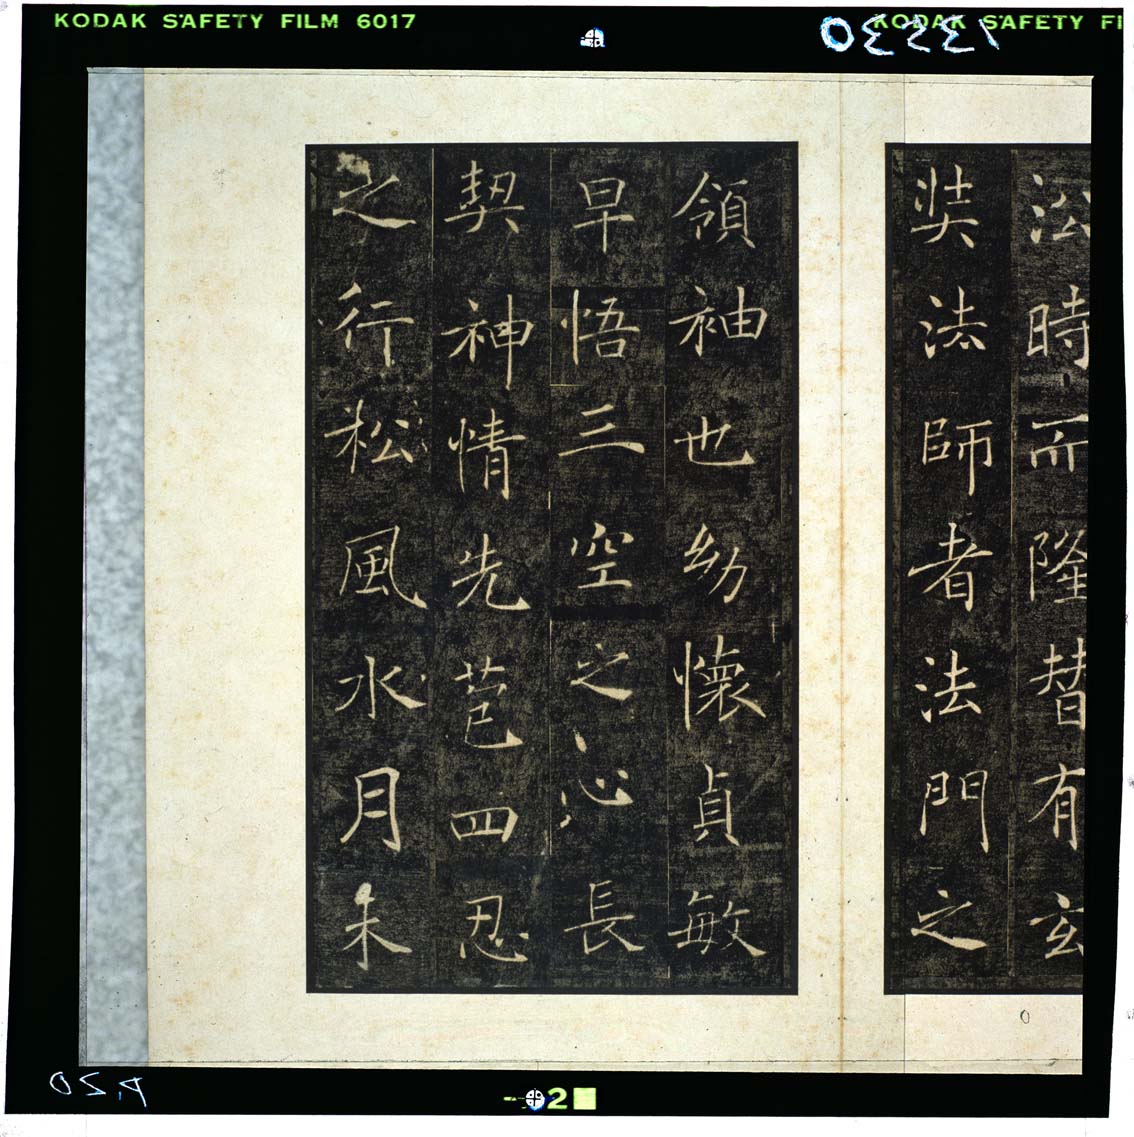 KODAK SAFETY FILM 6017
KODAK SAFETY FI
㳂時而隆替有玄
奘法師者法門之
領袖也幼懷貞敏
早悟三空之心長
契神情先苞四忍
之行松風水月未
P.20
2